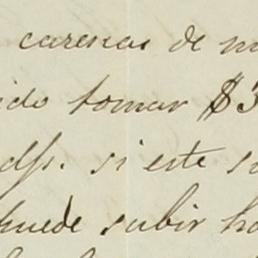 caresias de m
ido tomar $3
dho. si este s
puede subir ha